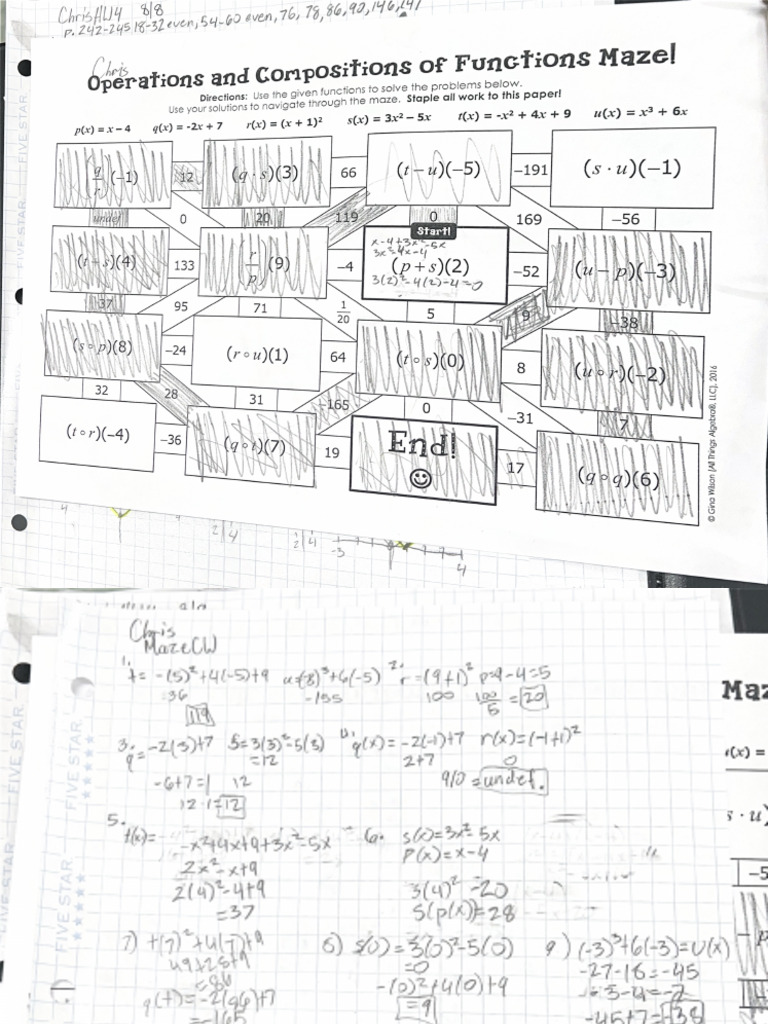 Chris HW4 8/8
p. 242-245 18-32 even, 54-60 even, 76, 78, 86, 90, 146, 147
Chris
Operations and Compositions of Functions Maze!
Directions: Use the given functions to solve the problems below.
Use your solutions to navigate through the maze. Staple all work to this paper!
p(x) = x − 4 q(x) = -2x + 7 r(x) = (x + 1)² s(x) = 3x² − 5x t(x) = -x² + 4x + 9 u(x) = x³ + 6x
(q/r)(−1) 12 (q · s)(3) 66 (t − u)(−5) −191 (s · u)(−1)
undef 0 20 119 0 169 −56
Start!
x-4+3x²-5x
3x²-4x-4
(t + s)(4) 133 (r/p)(9) −4 (p + s)(2) −52 (u − p)(−3)
3(2)²-4(2)-4=0
37 95 71 1/20 5 9 −38
(s ∘ p)(8) −24 (r ∘ u)(1) 64 (t ∘ s)(0) 8 (u ∘ r)(−2)
32 28 31 −165 0 −31 7
(t ∘ r)(−4) −36 (q ∘ t)(7) 19 End! 17 (q ∘ q)(6)
© Gina Wilson (All Things Algebra®, LLC), 2016
FIVE STAR
2 4
2 4
-3
4
Chris
Maze CW
1. t= -(5)²+4(-5)+9 u=(-5)³+6(-5) 2. r=(9+1)² p=9-4=5
-36 -155 100 100/5 = 20
119
3. q= -2(3)+7 s=3(3)²-5(3) q(x)=-2(-1)+7 r(x)=(-1+1)²
=12 2+7 0
-6+7=1 12 9/0=undef.
12·1=12
5. t(x)= -x²+4x+9+3x²-5x 6. s(x)=3x²-5x
2x²-x+9 p(x)=x-4
2(4)²-4+9 3(4)²-20
=37 s(p(x))=28
7) t(7)²+4(7)+9 8) s(0)=3(0)²-5(0) 9) (-3)³+6(-3)=u(x)
=0 -27-18=-45
=86 -(0)²+4(0)+9 -3-4=-7
q(t)=-2(86)+7 =9 -45+7=-38
=-165
FIVE STAR
FIVE STAR
Maz
r(x) =
s · u)
−5